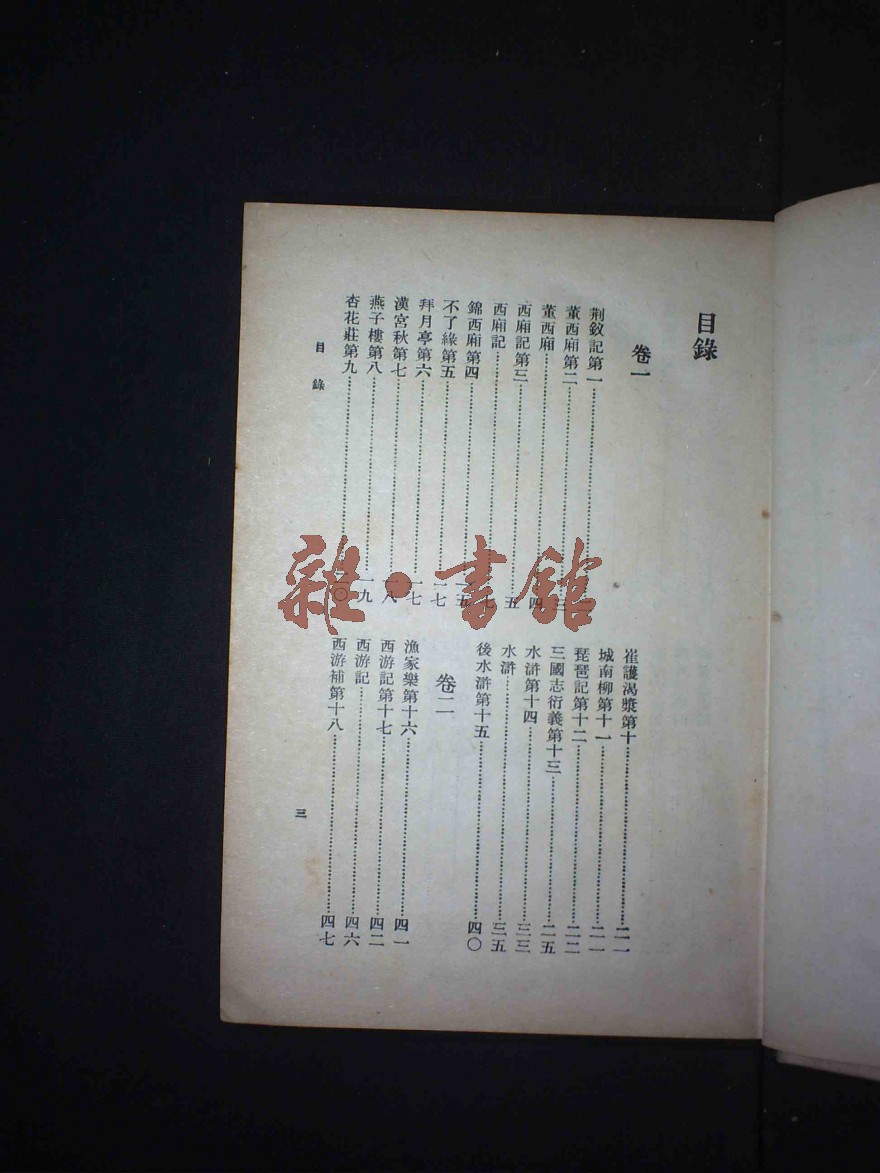 目錄
卷一
荆釵記第一
董西廂第二……三
董西廂……四
西廂記第三……五
西廂記……七
錦西廂第四……一五
不了緣第五……一七
拜月亭第六……一七
漢宮秋第七……一八
燕子樓第八……一九
杏花莊第九……二〇
崔護渴漿第十……二一
城南柳第十一……二一
琵琶記第十二……二二
三國志衍義第十三……二五
水滸第十四……三三
水滸……三五
後水滸第十五……四〇
卷二
漁家樂第十六……四一
西游記第十七……四二
西游記……四六
西游補第十八……四七
目錄
三
雜·書館